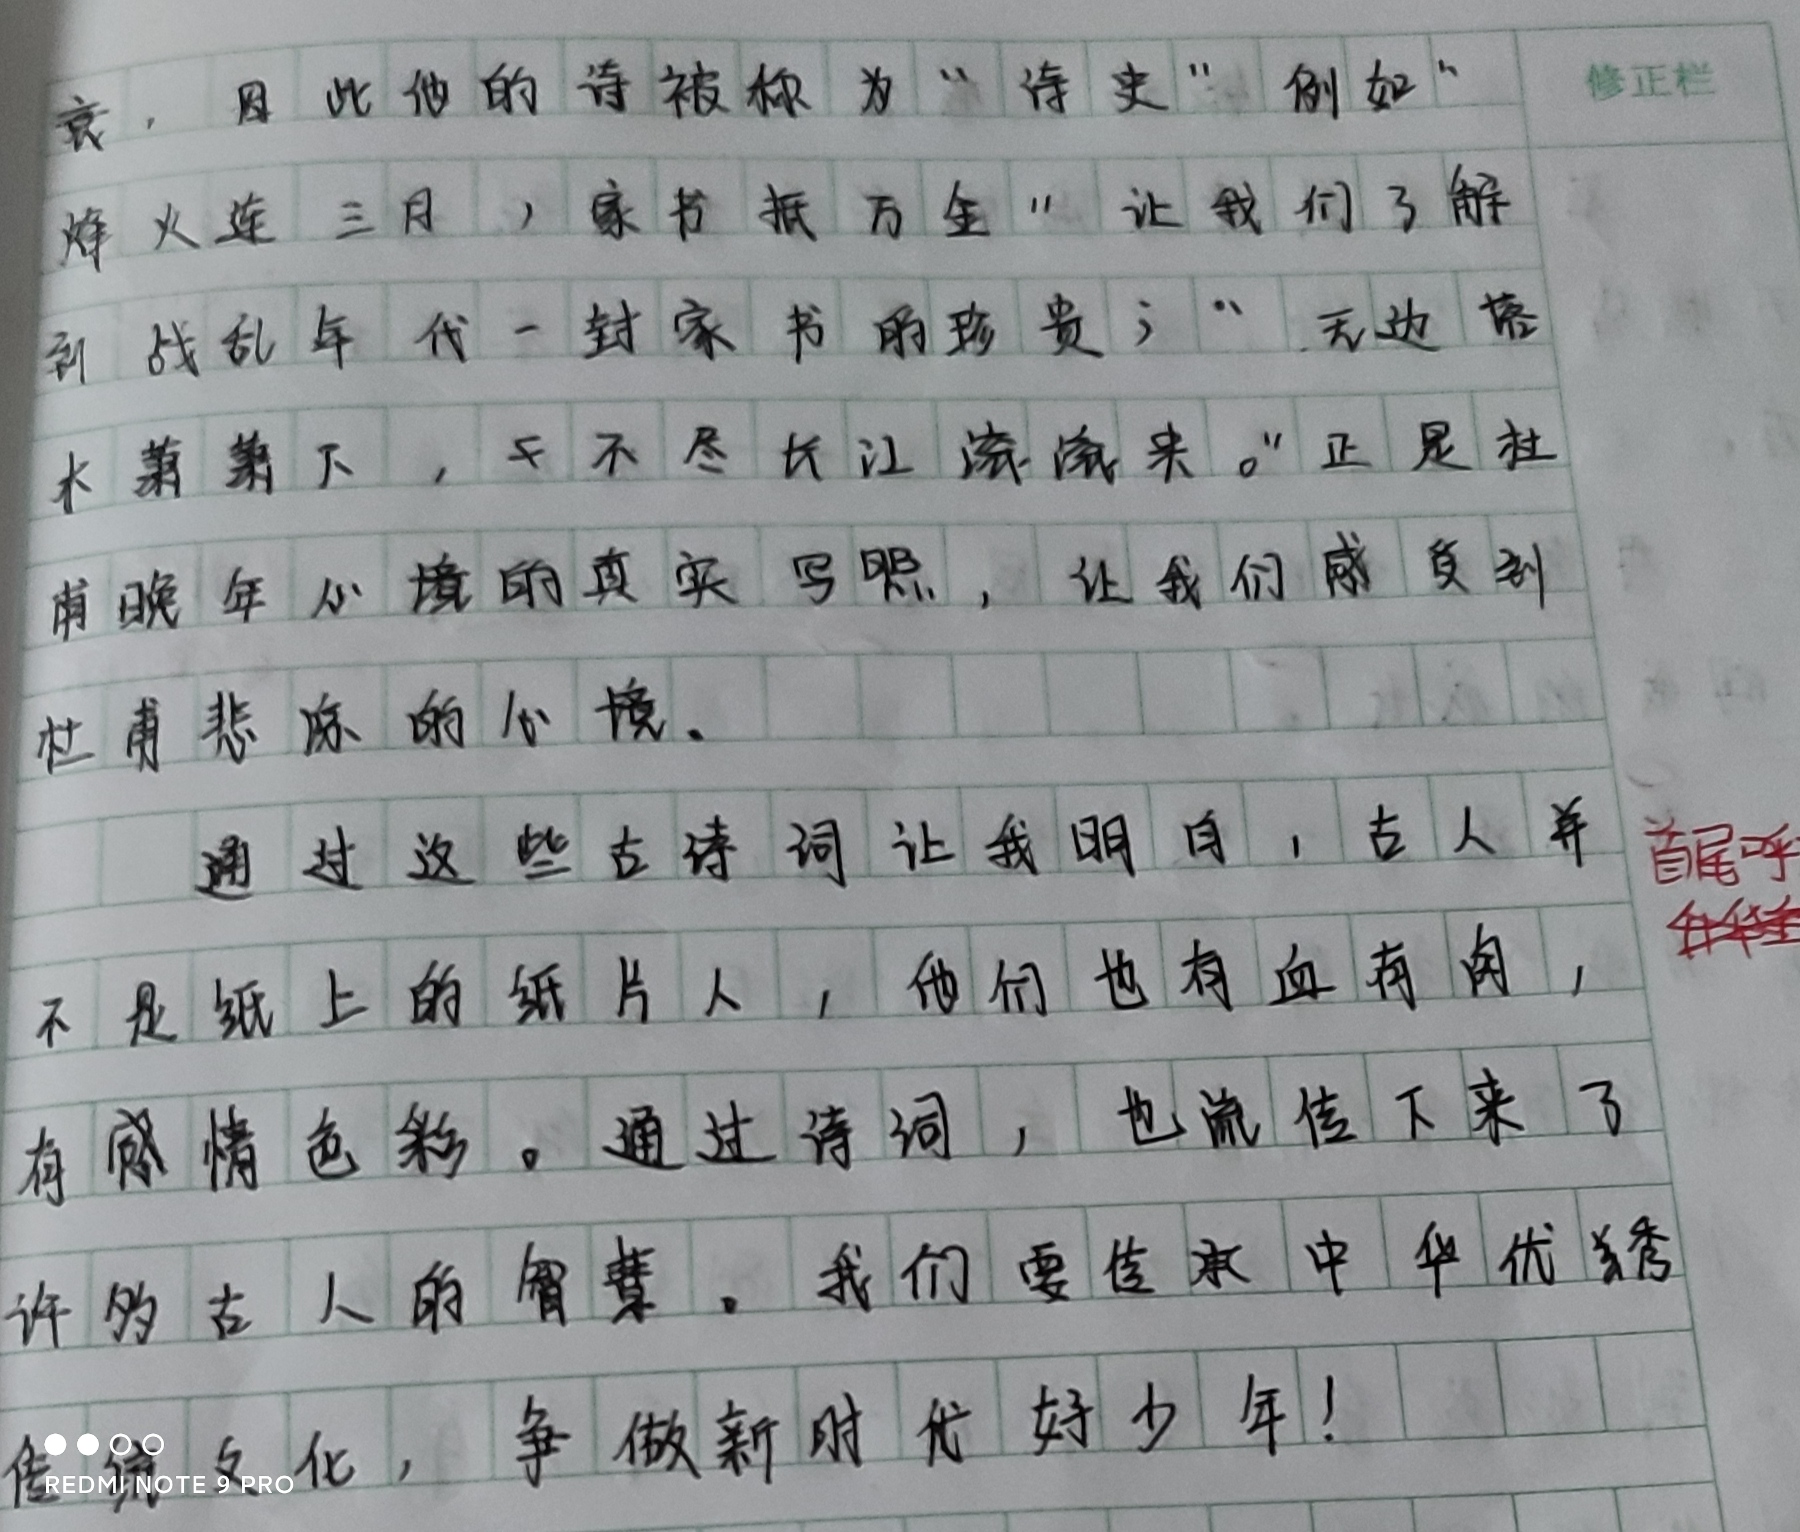 衰，因此他的诗被称为“诗史”例如“
修正栏
烽火连三月，家书抵万金”让我们了解
到战乱年代一封家书的珍贵；“无边落
木萧萧下，不尽长江滚滚来。”正是杜
甫晚年心境的真实写照，让我们感受到
杜甫悲凉的心境。
通过这些古诗词让我明白，古人并
首尾呼
不是纸上的纸片人，他们也有血有肉，
有感情色彩。通过诗词，也流传下来了
许多古人的智慧。我们要传承中华优秀
传统文化，争做新时代好少年！
REDMI NOTE 9 PRO